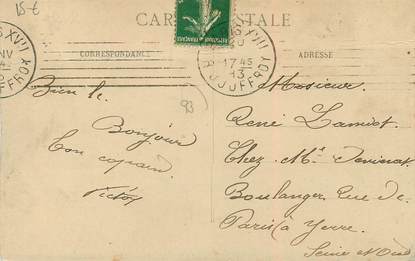 15 €
CARTE POSTALE
CORRESPONDANCE
ADRESSE
PARIS XVII
17 45
13
R. JOUFFROY
93
Bien le
Bonjour
Ton copain
Victor
Monsieur
René
Chez Mr
Boulanger Rue de
Paris à Yerre
Seine et Oise